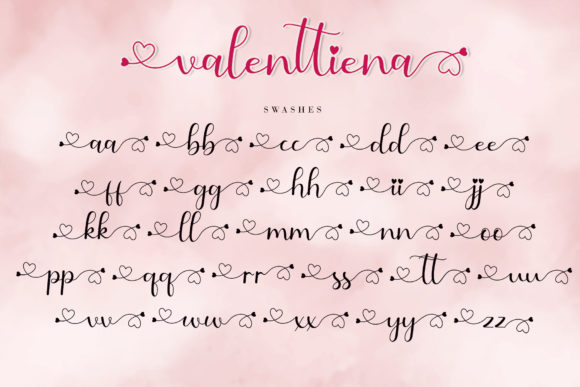 valenttiena
SWASHES
aa bb cc dd ee
ff gg hh ii jj
kk ll mm nn oo
pp qq rr ss tt uu
vv ww xx yy zz